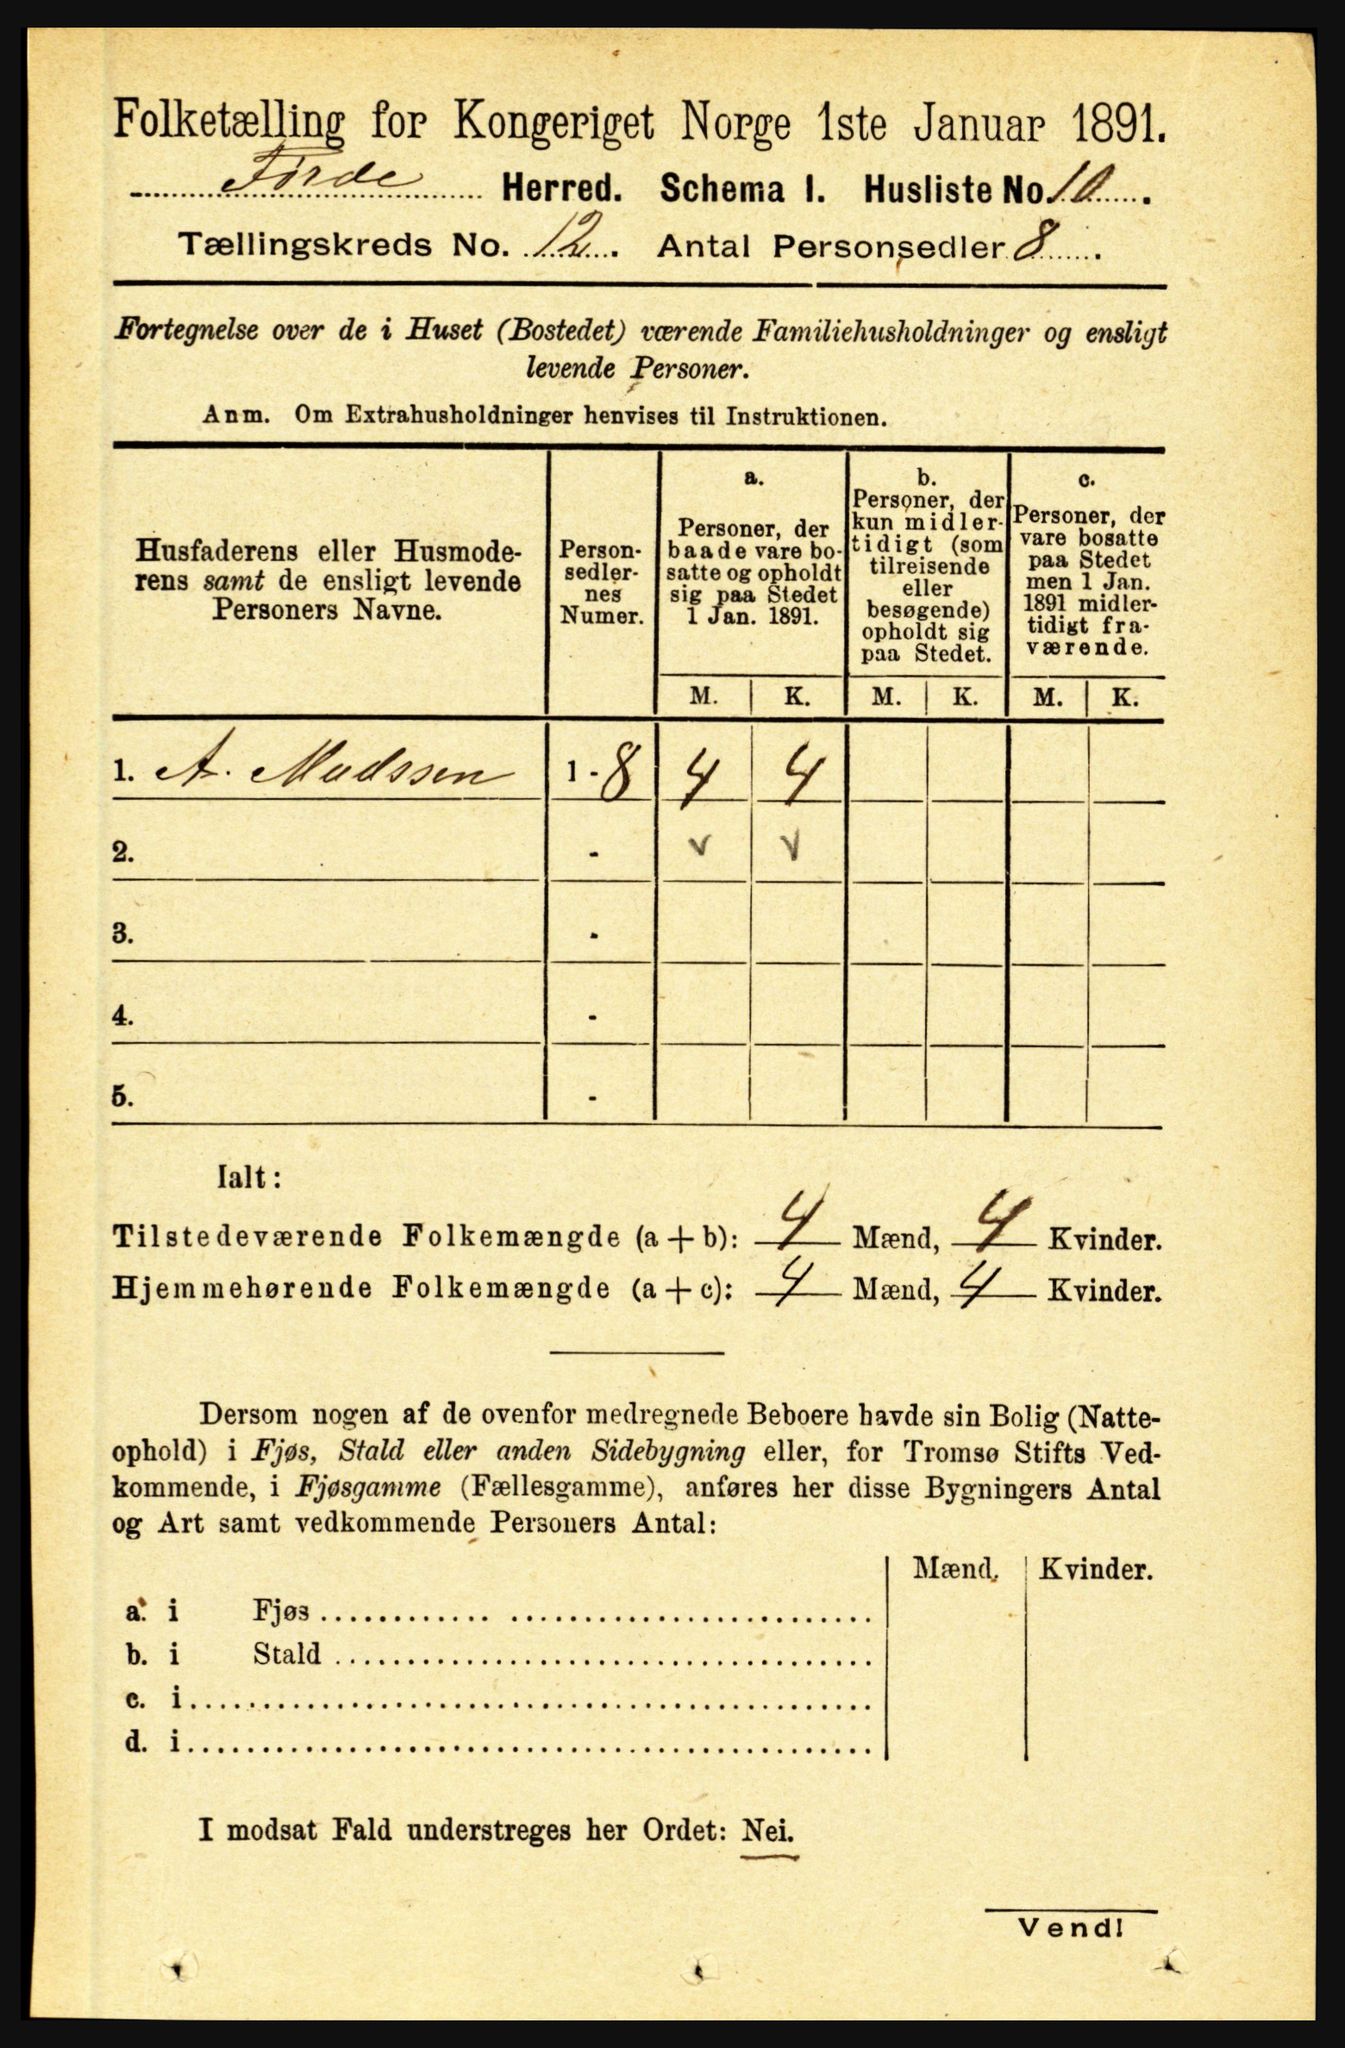 Folketælling for Kongeriget Norge 1ste Januar 1891.
Førde Herred. Schema I. Husliste No. 10.
Tællingskreds No. 12. Antal Personsedler 8.
Fortegnelse over de i Huset (Bostedet) værende Familiehusholdninger og ensligt
levende Personer.
Anm. Om Extrahusholdninger henvises til Instruktionen.
Husfaderens eller Husmode-
rens samt de ensligt levende
Personers Navne.
Person-
sedler-
nes
Numer.
a.
Personer, der
baade vare bo-
satte og opholdt
sig paa Stedet
1 Jan. 1891.
b.
Personer, der
kun midler-
tidigt (som
tilreisende
eller
besøgende)
opholdt sig
paa Stedet.
c.
Personer, der
vare bosatte
paa Stedet
men 1 Jan.
1891 midler-
tidigt fra-
værende.
M. K. M. K. M. K.
1. A. Madssen 1 - 8 4 4
2. - v v
3. -
4. -
5. -
Ialt:
Tilstedeværende Folkemængde (a + b): 4 Mænd, 4 Kvinder.
Hjemmehørende Folkemængde (a + c): 4 Mænd, 4 Kvinder.
Dersom nogen af de ovenfor medregnede Beboere havde sin Bolig (Natte-
ophold) i Fjøs, Stald eller anden Sidebygning eller, for Tromsø Stifts Ved-
kommende, i Fjøsgamme (Fællesgamme), anføres her disse Bygningers Antal
og Art samt vedkommende Personers Antal:
Mænd. Kvinder.
a. i Fjøs
b. i Stald
c. i
d. i
I modsat Fald understreges her Ordet: Nei.
Vend!